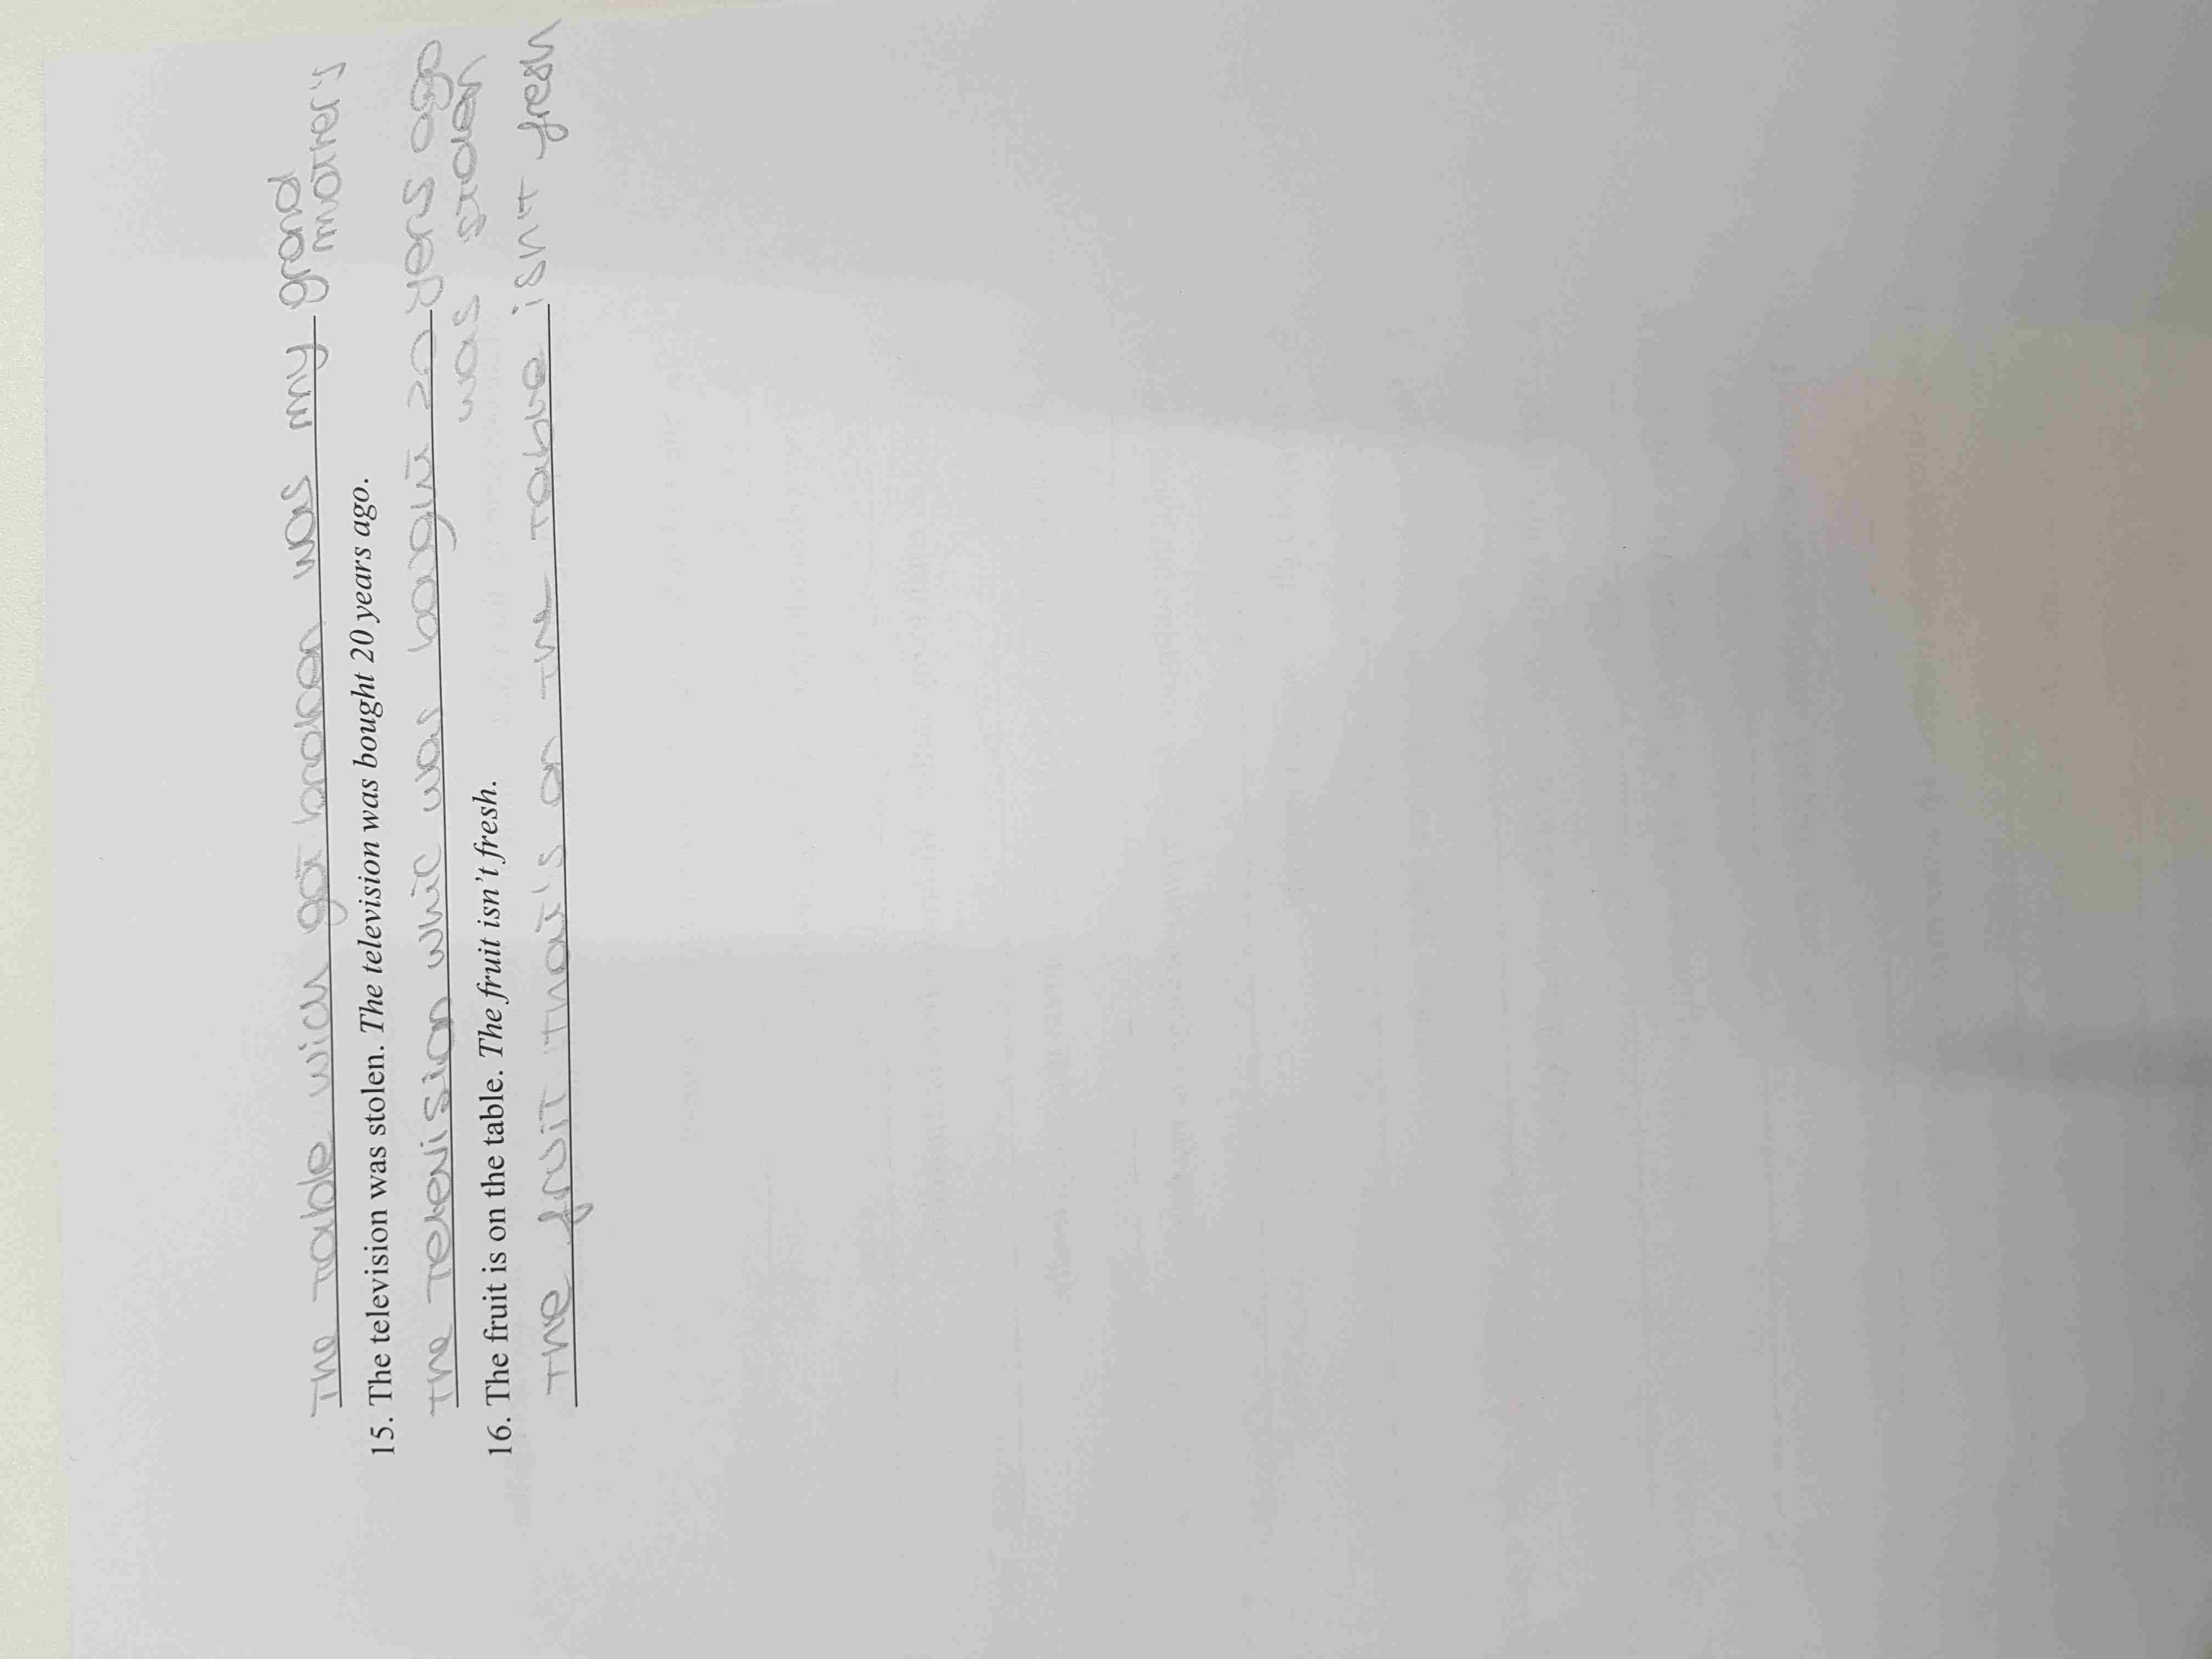 The table wich got broken was my grand
mother's
15. The television was stolen. The television was bought 20 years ago.
the television whic was bought 20 yers ago
was stolen
16. The fruit is on the table. The fruit isn't fresh.
The fruit that's on the table isn't fresh